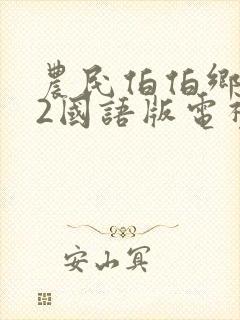 農民伯伯鄉
2國語版電
安山冥